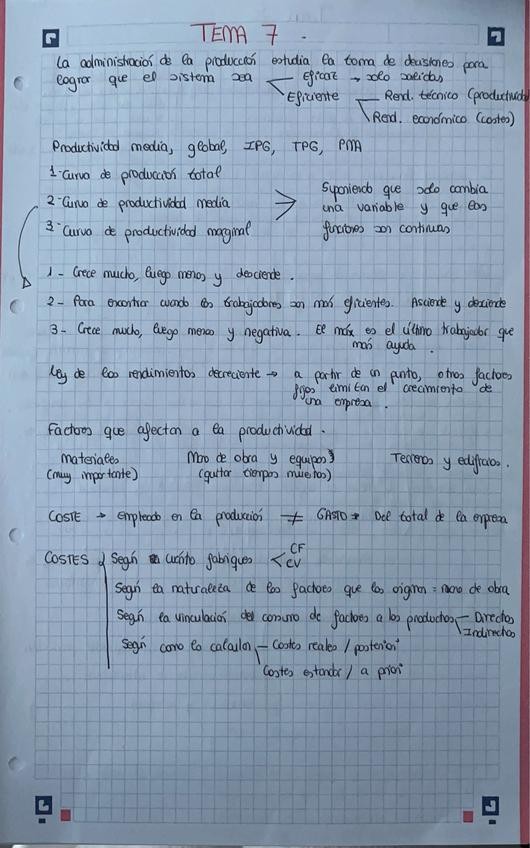 TEMA 7.
La administración de la producción estudia la toma de decisiones para
lograr que el sistema sea Eficaz → solo salidas
Eficiente Rend. técnico (productividad
Rend. económico (costes)
Productividad media, global, IPG, TPG, PMA
1- Curva de producción total
2- Curva de productividad media
3- Curva de productividad marginal
Suponiendo que solo cambia
una variable y que las
funciones son continuas
1 - Crece mucho, luego menos y desciende.
2 - Para encontrar cuando los trabajadores son más eficientes. Asciende y desciende
3 - Crece mucho, luego menos y negativa. El máx es el último trabajador que
más ayuda.
Ley de los rendimientos decreciente → a partir de un punto, otros factores
fijos limitan el crecimiento de
una empresa.
Factores que afectan a la productividad.
Materiales
(muy importante)
Mano de obra y equipos
(quitar tiempos muertos)
Terrenos y edificios.
COSTE → empleado en la producción ≠ GASTO → Del total de la empresa
COSTES Según cuánto fabriques < CF
CV
Según la naturaleza de los factores que los origina = mano de obra
Según la vinculación del consumo de factores a los productos Directos
Indirectos
Según como lo calculas Costes reales / posteriori
Costes estandar / a priori